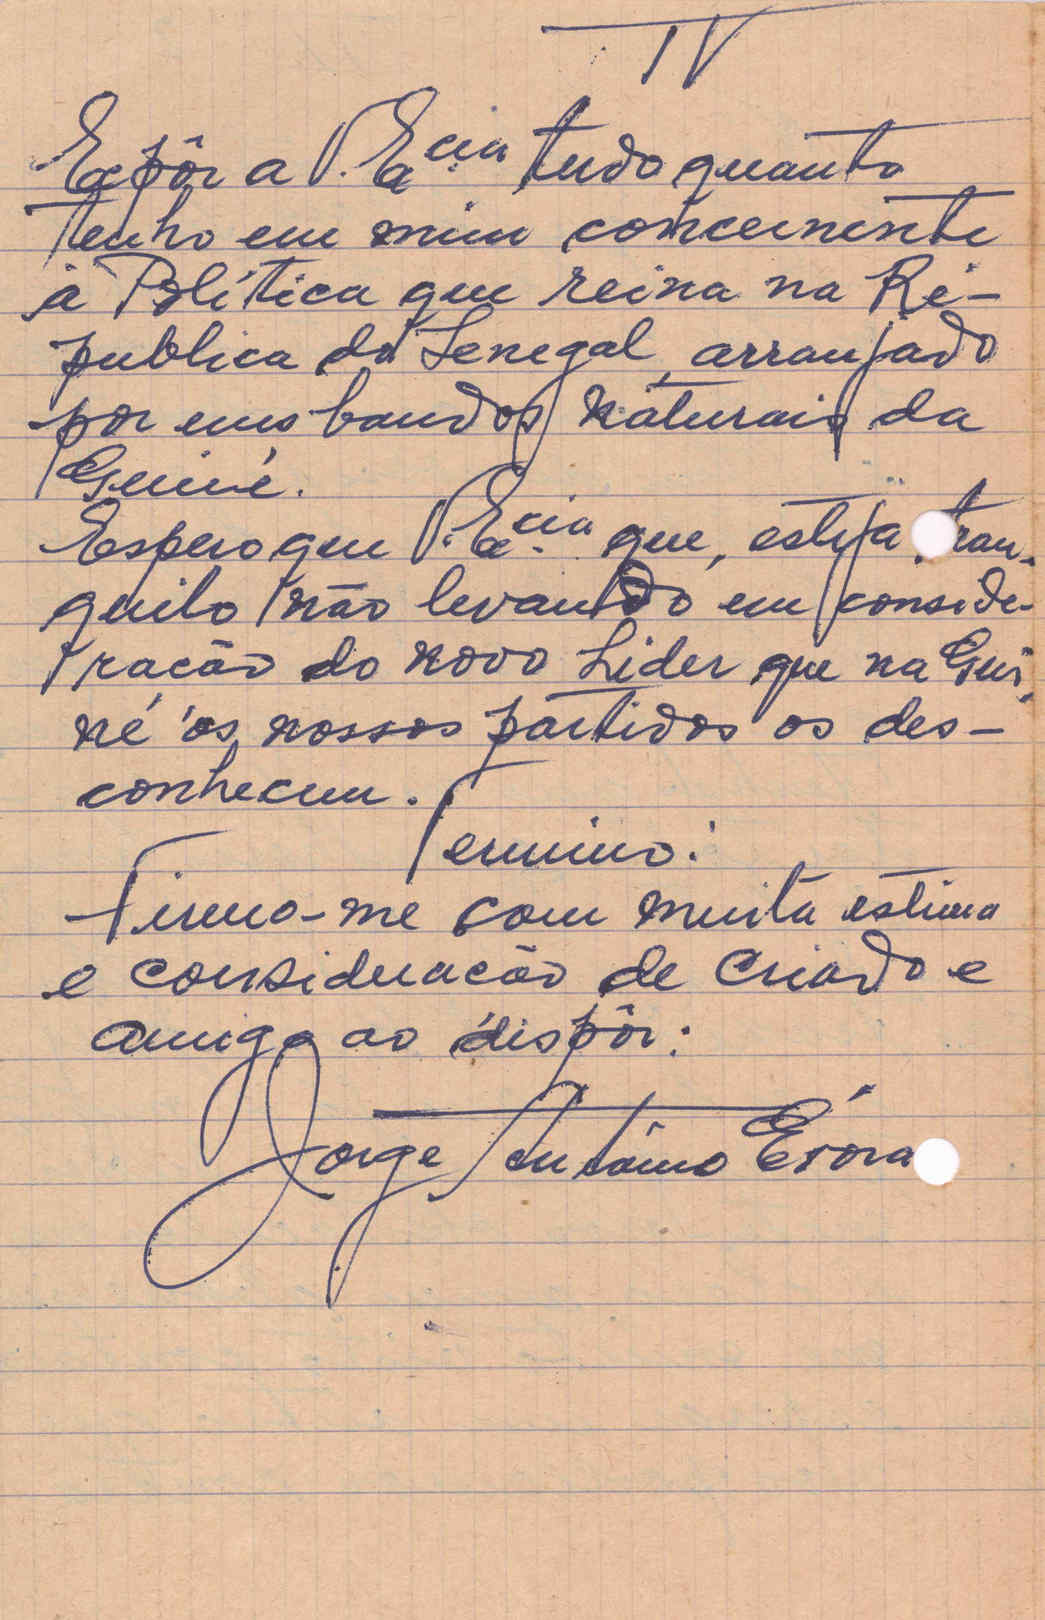 IV
Expôr a V. Ex.cia tudo quanto
tenho em mim concernente
à Política que reina na Ré-
publica do Senegal, arranjado
por uns bandos naturais da
Guiné.
Espero que V. Ex.cia que, esteja tran-
quilo não levando em conside-
ração do novo Lider que na Gui-
né os nossos partidos os des-
conhecem.
Termino:
Firmo-me com muita estima
e consideração de Criado e
amigo ao dispôr:
Jorge António Évora